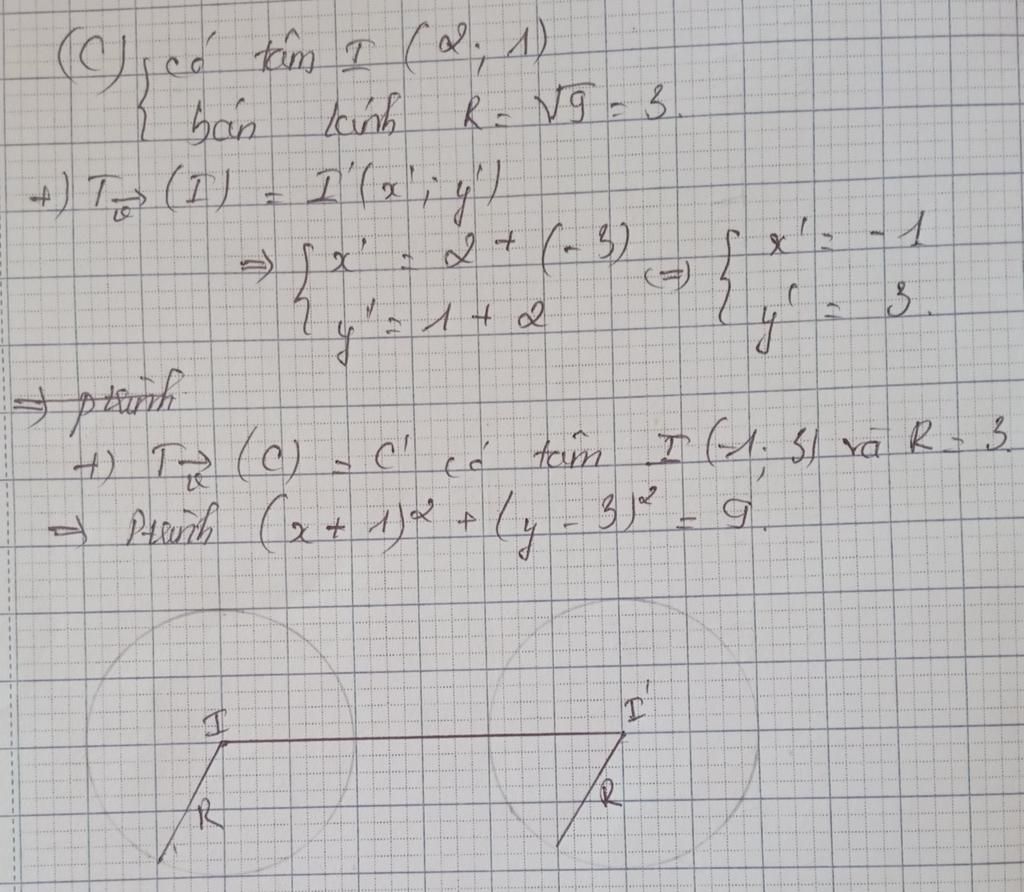 (C) { có tâm I (2; 1)
bán kính R = √9 = 3.
+) T_v→ (I) = I'(x'; y')
⇒ { x' = 2 + (-3) (=) { x' = -1
y' = 1 + 2 y' = 3.
⇒ ptrình
+) T_v→ (C) = C' có tâm I (-1; 3) và R = 3.
⇒ Ptrình (x + 1)² + (y - 3)² = 9.
I I'
R R